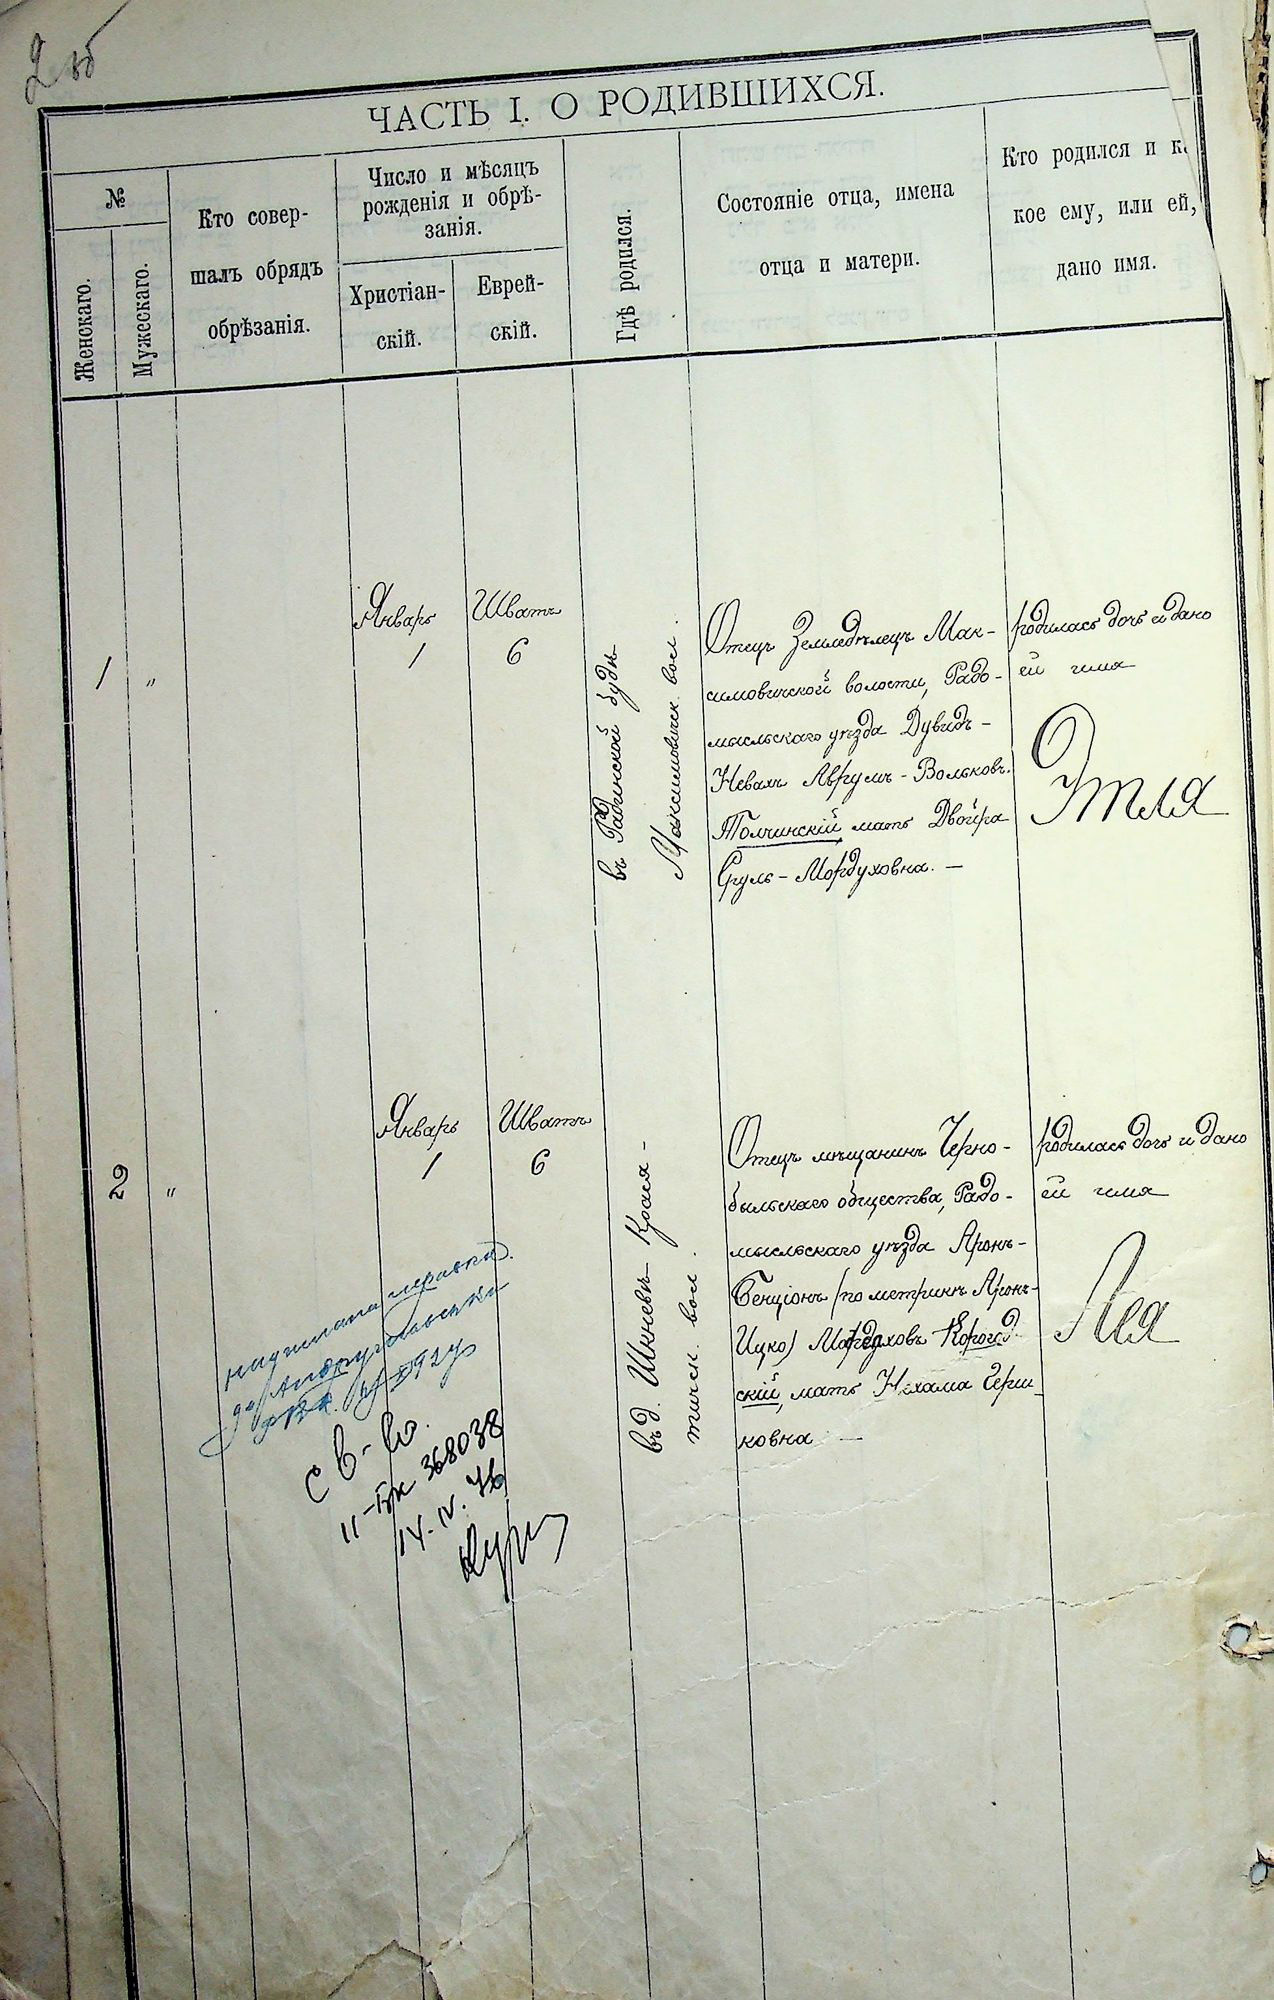 2 об
ЧАСТЬ I. О РОДИВШИХСЯ.
№
Женскаго.
Мужескаго.
Кто совер-
шалъ обрядъ
обрѣзанія.
Число и мѣсяцъ
рожденія и обрѣ-
занія.
Христіан-
скій.
Еврей-
скій.
Гдѣ родился.
Состояніе отца, имена
отца и матери.
Кто родился и ка
кое ему, или ей,
дано имя.
1
"
Январь
1
Шватъ
6
въ Рабинской будѣ
Максимовичск. вол.
Отецъ Земледѣлецъ Мак-
симовичской волости, Радо-
мысльскаго уѣзда Дувидъ-
Невахъ Аврумъ-Вольковъ
Толчинскій, мать Двойра
Сруль-Мордуховна. —
родилась дочь и дано
ей имя
Этля
2
"
Январь
1
Шватъ
6
въ д. Шкневѣ Крася-
тичск. вол.
Отецъ мѣщанинъ Черно-
быльскаго общества, Радо-
мысльскаго уѣзда Аронъ-
Бенціонъ (по метрикѣ Аронъ-
Ицко) Мордуховъ Корогод-
скій, мать Нехама Герш-
ковна —
родилась дочь и дано
ей имя
Лея
1924
с в-во
II-БК 368038
14. IV. 76